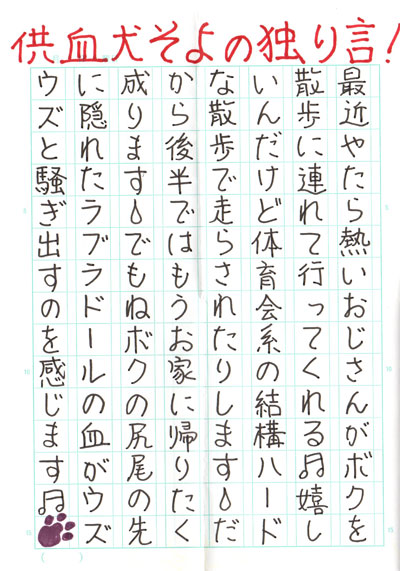 供血犬そよの独り言!
最近やたら熱いおじさんがボクを
散歩に連れて行ってくれる♫嬉し
いんだけど体育会系の結構ハード
な散歩で走らされたりします💧だ
から後半ではもうお家に帰りたく
成ります💧でもねボクの尻尾の先
に隠れたラブラドールの血がウズ
ウズと騒ぎ出すのを感じます♫